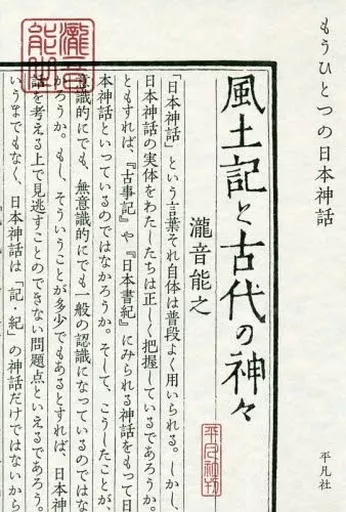 もうひとつの日本神話
平凡社
風土記と古代の神々
瀧音能之
平凡社刊
「日本神話」という言葉それ自体は普段よく用いられる。しかし、
日本神話の実体をわたしたちは正しく把握しているであろうか。
ともすれば、『古事記』や『日本書紀』にみられる神話をもって日
本神話といっているのではなかろうか。そして、こうしたことが、
意識的にでも、無意識的にでも一般の認識になっているのではな
かろうか。もし、そういうことが多少でもあるとすれば、日本神
話を考える上で見逃すことのできない問題点といえるであろう。
いうまでもなく、日本神話は「記・紀」の神話だけではないから
瀧音
能之